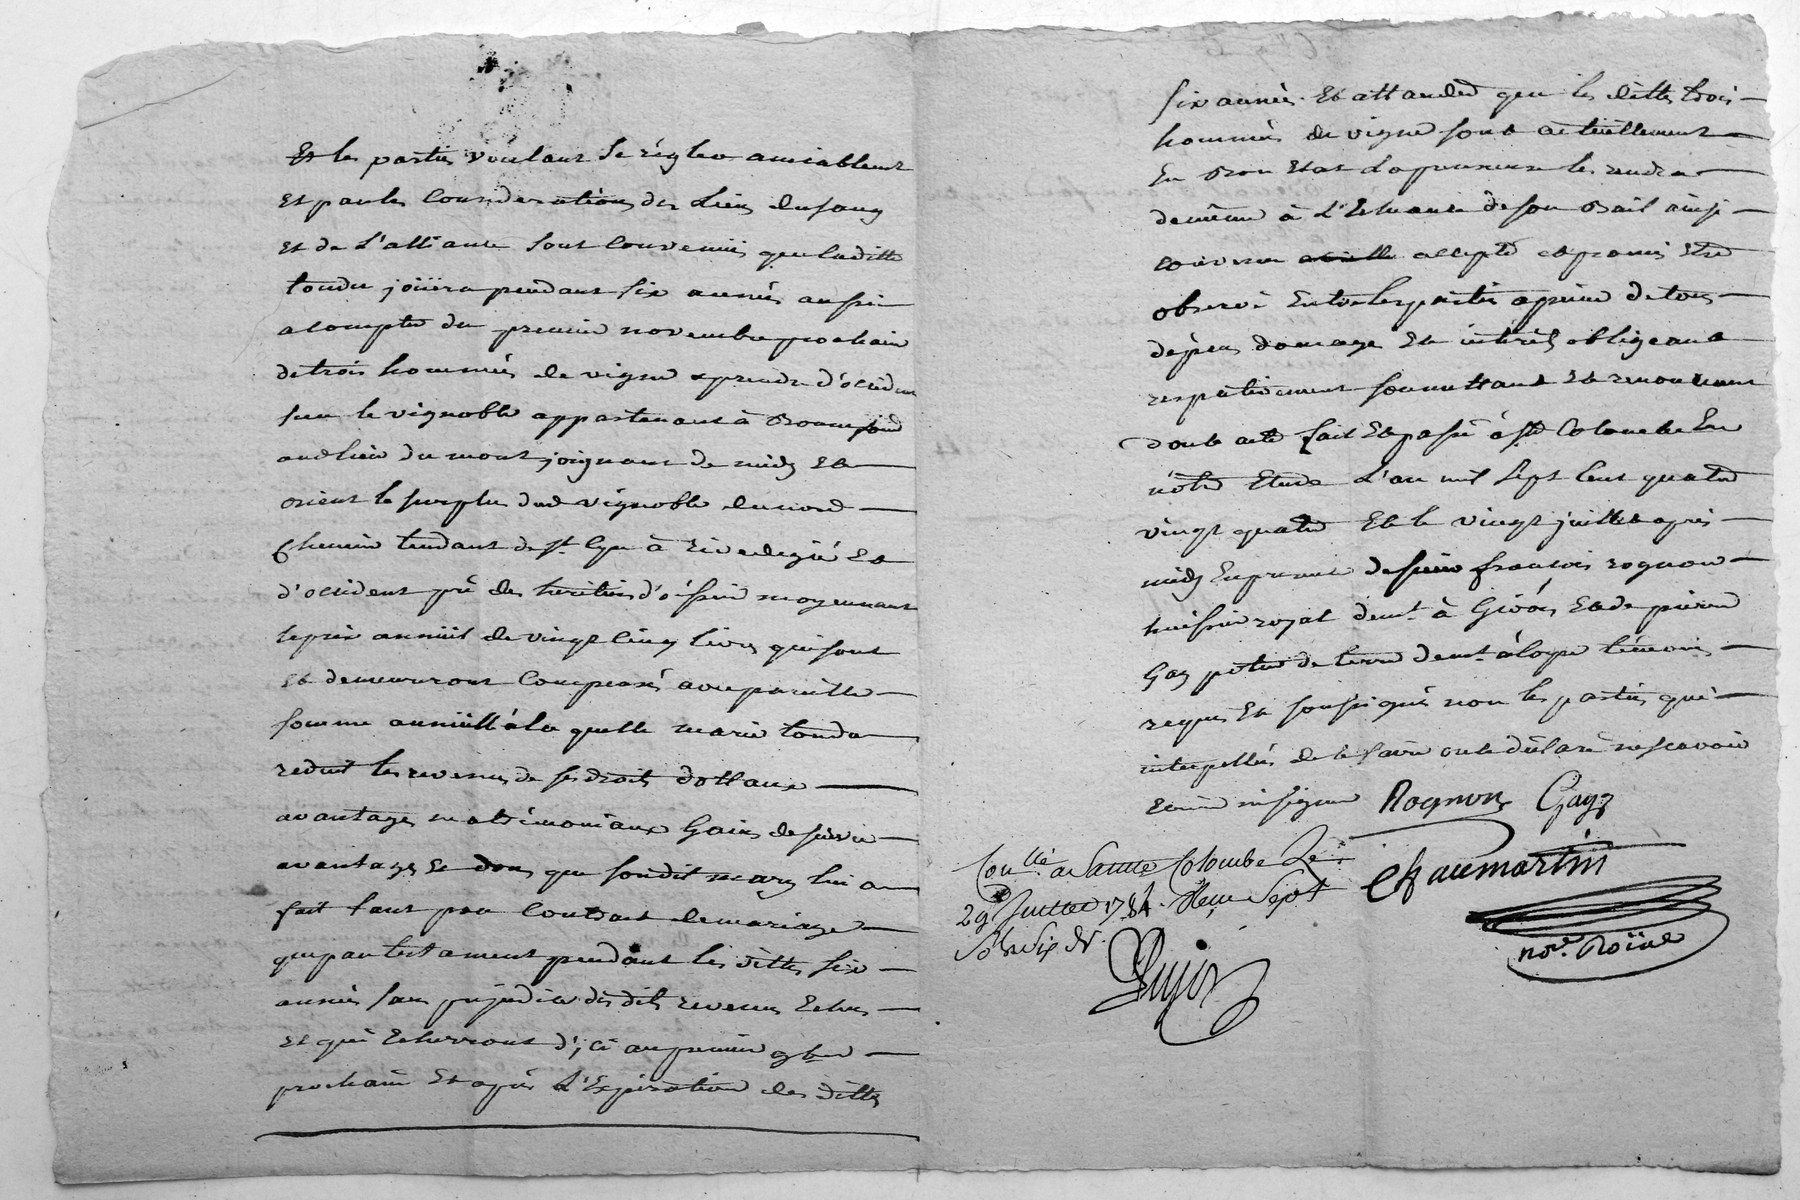 Et les parties voulant se régler amiablemt
Et par les considerations des Liens du sang
Et de L'alliance sont convenuës que laditte
tondu joüira pendant six années aussi
a compter du premier novembre prochain
de trois hommées de vigne a prendre d'occident
sur le vignoble appartenant à
audt lieu du mont joignant de midy Et
orient le surplus dud vignoble du nord
Chemin tendant de st. Cyr à Rivedegié Et
d'occident pré des heritiers d' moyennant
le prix annüel de vingt cinq livres qui sont
Et demeureront Compensés avec pareille
somme annüelle à la quelle marie tondu
reduit les revenus de ses droits dottaux
avantages matrimoniaux Gains de survie
avantages Et dons que son dit mary lui a
fait tant par Contract de mariage
que par testament pendant les dittes six
années sans prejudice des dits revenus Echus
Et qui Echerront d'ici au premier 9bre
prochain Et après L'Expiration des dittes
six années. Et attandu que les dittes trois
hommées de vigne sont actüellement
En Bon Etat la preneuse les rendra
de même à L'Echeance de son Bail ainsi
convenu accepté et promis Etre
observé Entre les parties a peine de tous
depens domage Et intérêts obligeant
respectivement soumettant Et renonceant
dont acte fait Et passé à ste Colombe En
nôtre Etude L'an mil sept cent quatre
vingt quatre Et le vingt juillet après
midy En presence de sieur françois rognon
huissier royal demt. à Givors Et de pierre
Gay potier de terre demt. à Loyre témoins
requis Et soussignés non les parties qui
interpellées de le faire ont déclaré ne scavoir
Ecrire ni signer Rognon Gay
Conllé a Sainte Colombe Le
29 Juillet 1784. Reçu Sept
Sols six drs.
Chaumartin
nore. Roïal